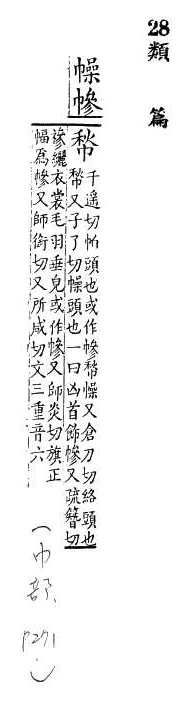 28 類 篇
幧幓
千遥切帕頭也或作幓幧又倉刀切絡頭也
又子了切幧頭也一曰凶首飾幓又疏簪切
襂纚衣裳毛羽垂皃或作幓又師炎切旗正
幅為幓又師銜切又所咸切文三重音六
(巾部 P271)